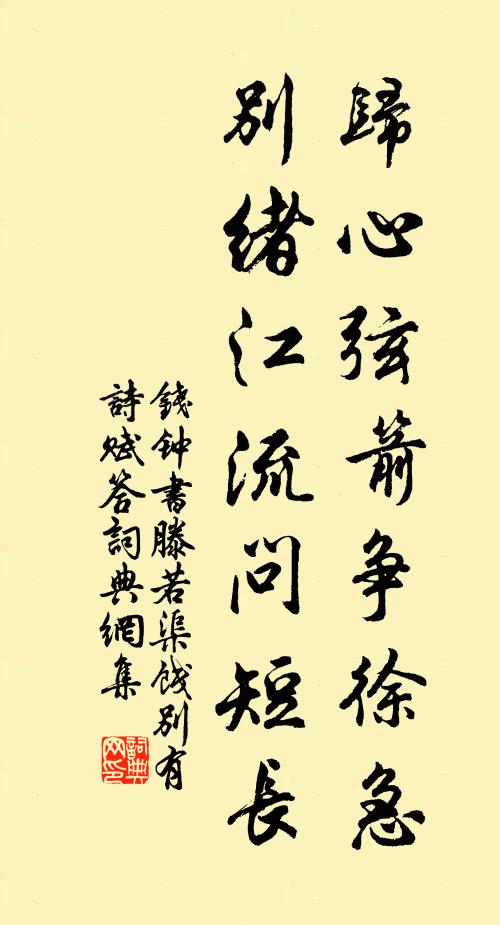 歸心弦箭爭徐急
別緒江流問短長
錢钟書滕若渠餞別有
詩賦答詞典網集
詞典網印